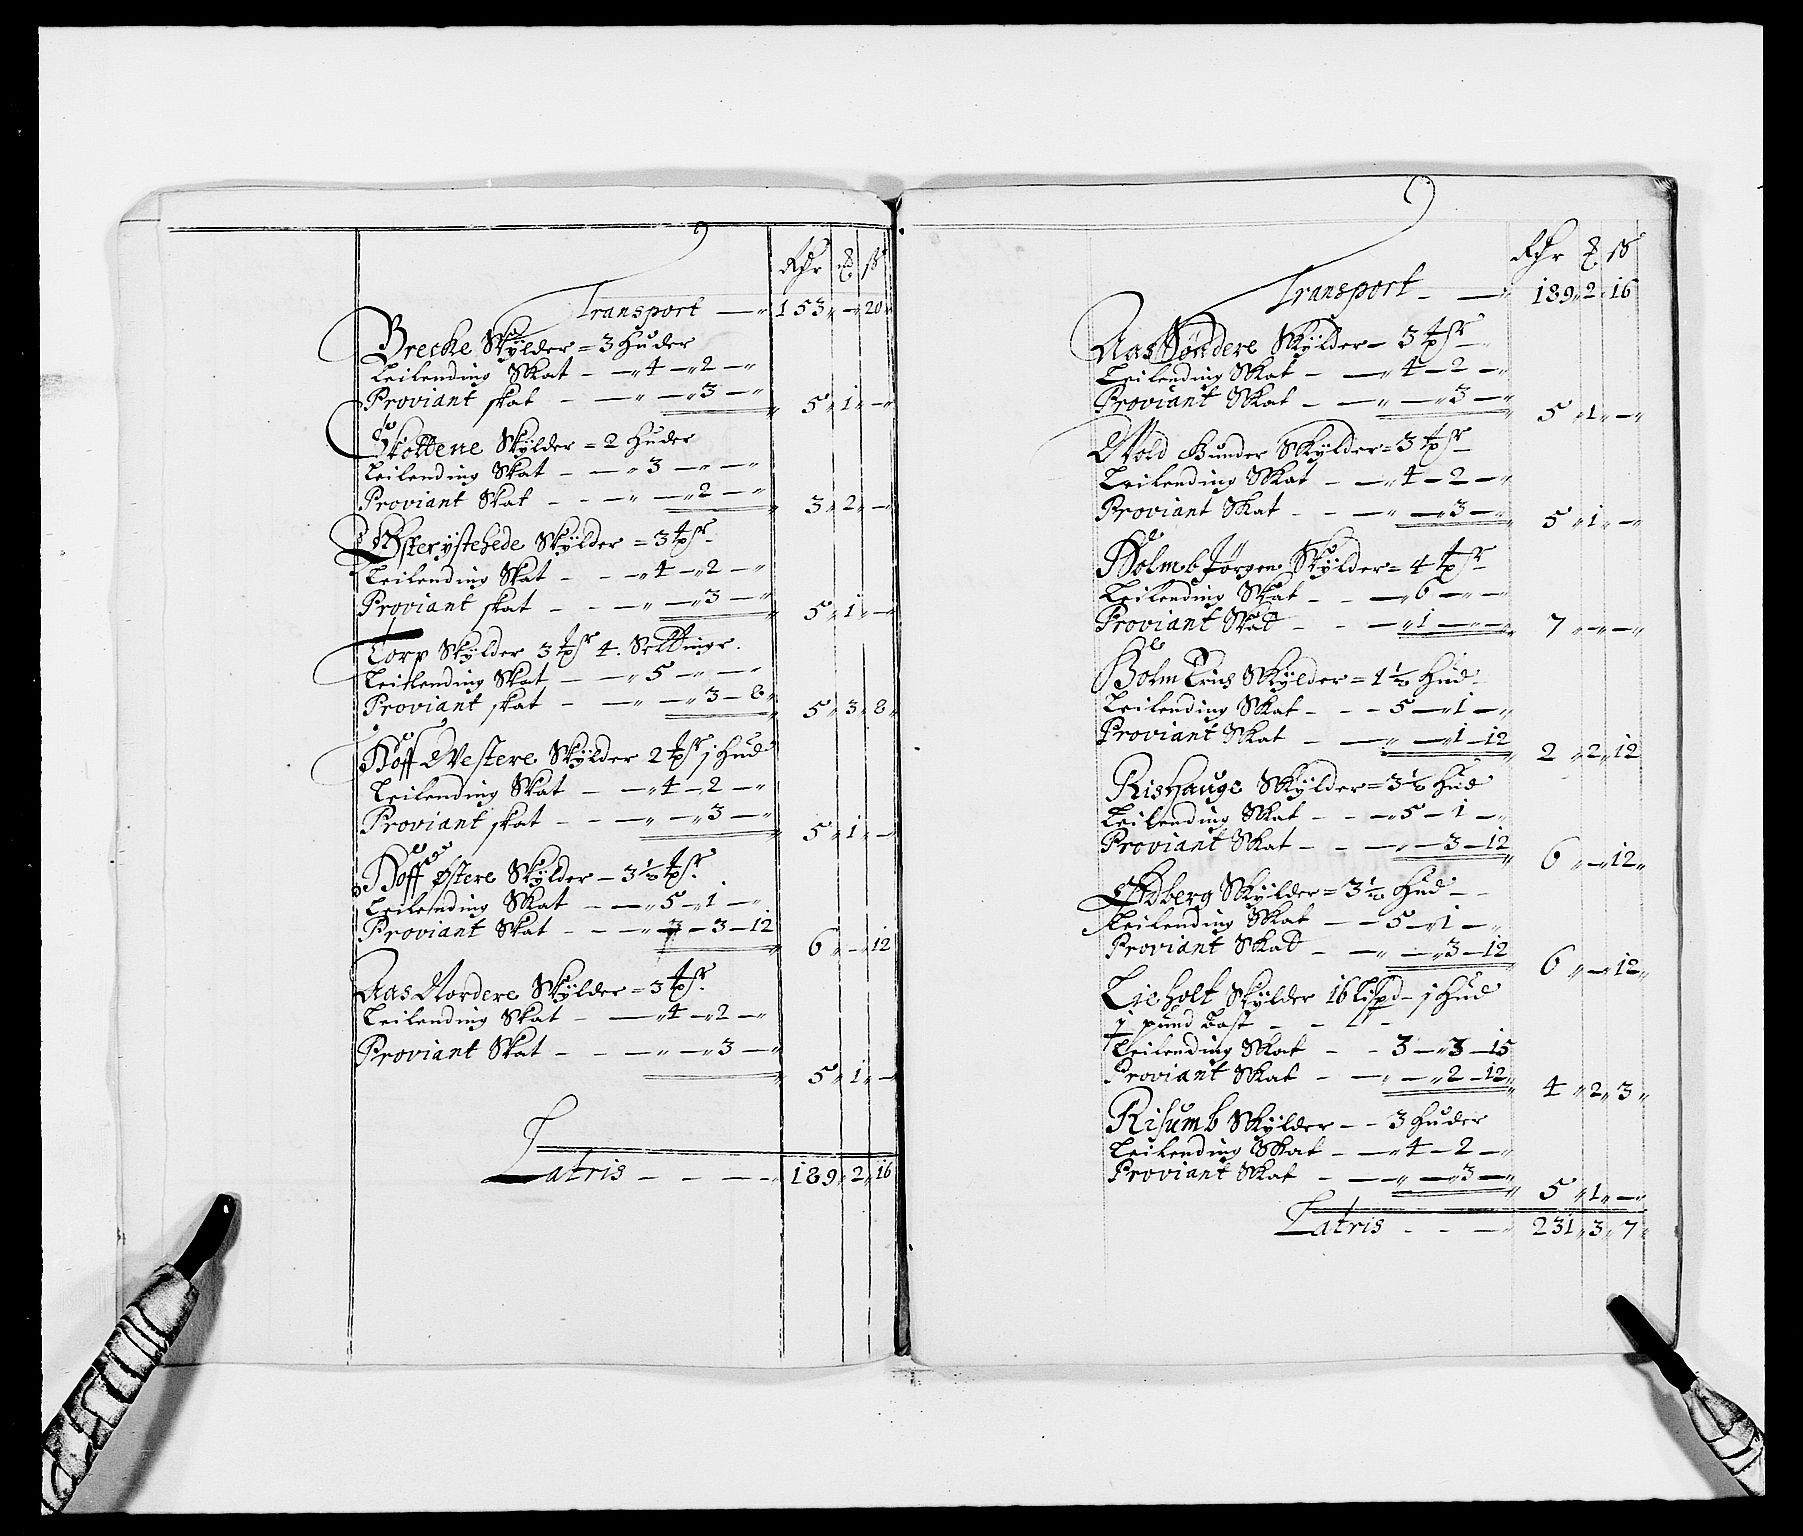 Rdr ß
Transport — 153 — 20
Brecke Skÿlder = 3 huder
Leilending Skat — 4 — 2 —
Proviant skat — — 3 —
5 1 —
Skottene Skÿlder = 2 huder
Leilending Skat — 3 — —
Proviant Skat — — 2 —
3 2 —
Skÿlder = 3 tpſr
Leilending Skat — 4 — 2 —
Proviant skat — — 3 —
5 1 —
Torp Skÿlder 3 tpſr 4. Settingr.
Leilending Skat — 5 — —
Proviant skat — — 3 — 8
5 3 8
Hoff Westere Skÿlder 2 tpſr j hud
Leilending Skat — 4 — 2 —
Proviant skat — — 3 —
5 1 —
Hoff østere Skÿlder — 3 ½ tpſr.
Leilending Skat — 5 — 1 —
Proviant Skat — 3 — 12
6 — 12
Aas Nordere Skÿlder = 3 tpſr.
Leilending Skat — 4 — 2 —
Proviant Skat — — 3 —
5 1 —
Latris — 189 2 16
Rdr ß
Transport — 189 2 16
Aas Søndere Skÿlder — 3 tpſr
Leilending Skat — 4 — 2 —
Proviant Skat — — 3 —
5 1 —
Wold Gunder Skÿlder = 3 tpſr
Leilending Skat — 4 — 2 —
Proviant Skat — — 3 —
5 1 —
Holmb Jørgen Skÿlder = 4 tpſr
Leilending Skat — 6 — —
Proviant Skat — 1 — —
7 — —
Holm Skÿlder = 1 ½ hud
Leilending Skat — 5 — 1 —
Proviant Skat — — 1 — 12
2 2 12
Rishauge Skÿlder = 3 ½ hud
Leilending Skat — 5 — 1 —
Proviant Skat — — 3 — 12
6 — 12
Skÿlder = 3 ½ hud
Leilending Skat — 5 — 1 —
Proviant Skat — — 3 — 12
6 — 12
Lieholt Skÿlder 16 lispd — j hud
j pund Tost
Leilending Skat — 3 — 3 — 15
Proviant Skat — — 2 — 12
4 2 3
Risumb Skÿlder — 3 huder
Leilending Skat — 4 — 2 —
Proviant Skat — — 3 —
5 1 —
Latris — 231 3 7